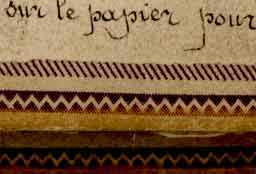 sur le papier pour